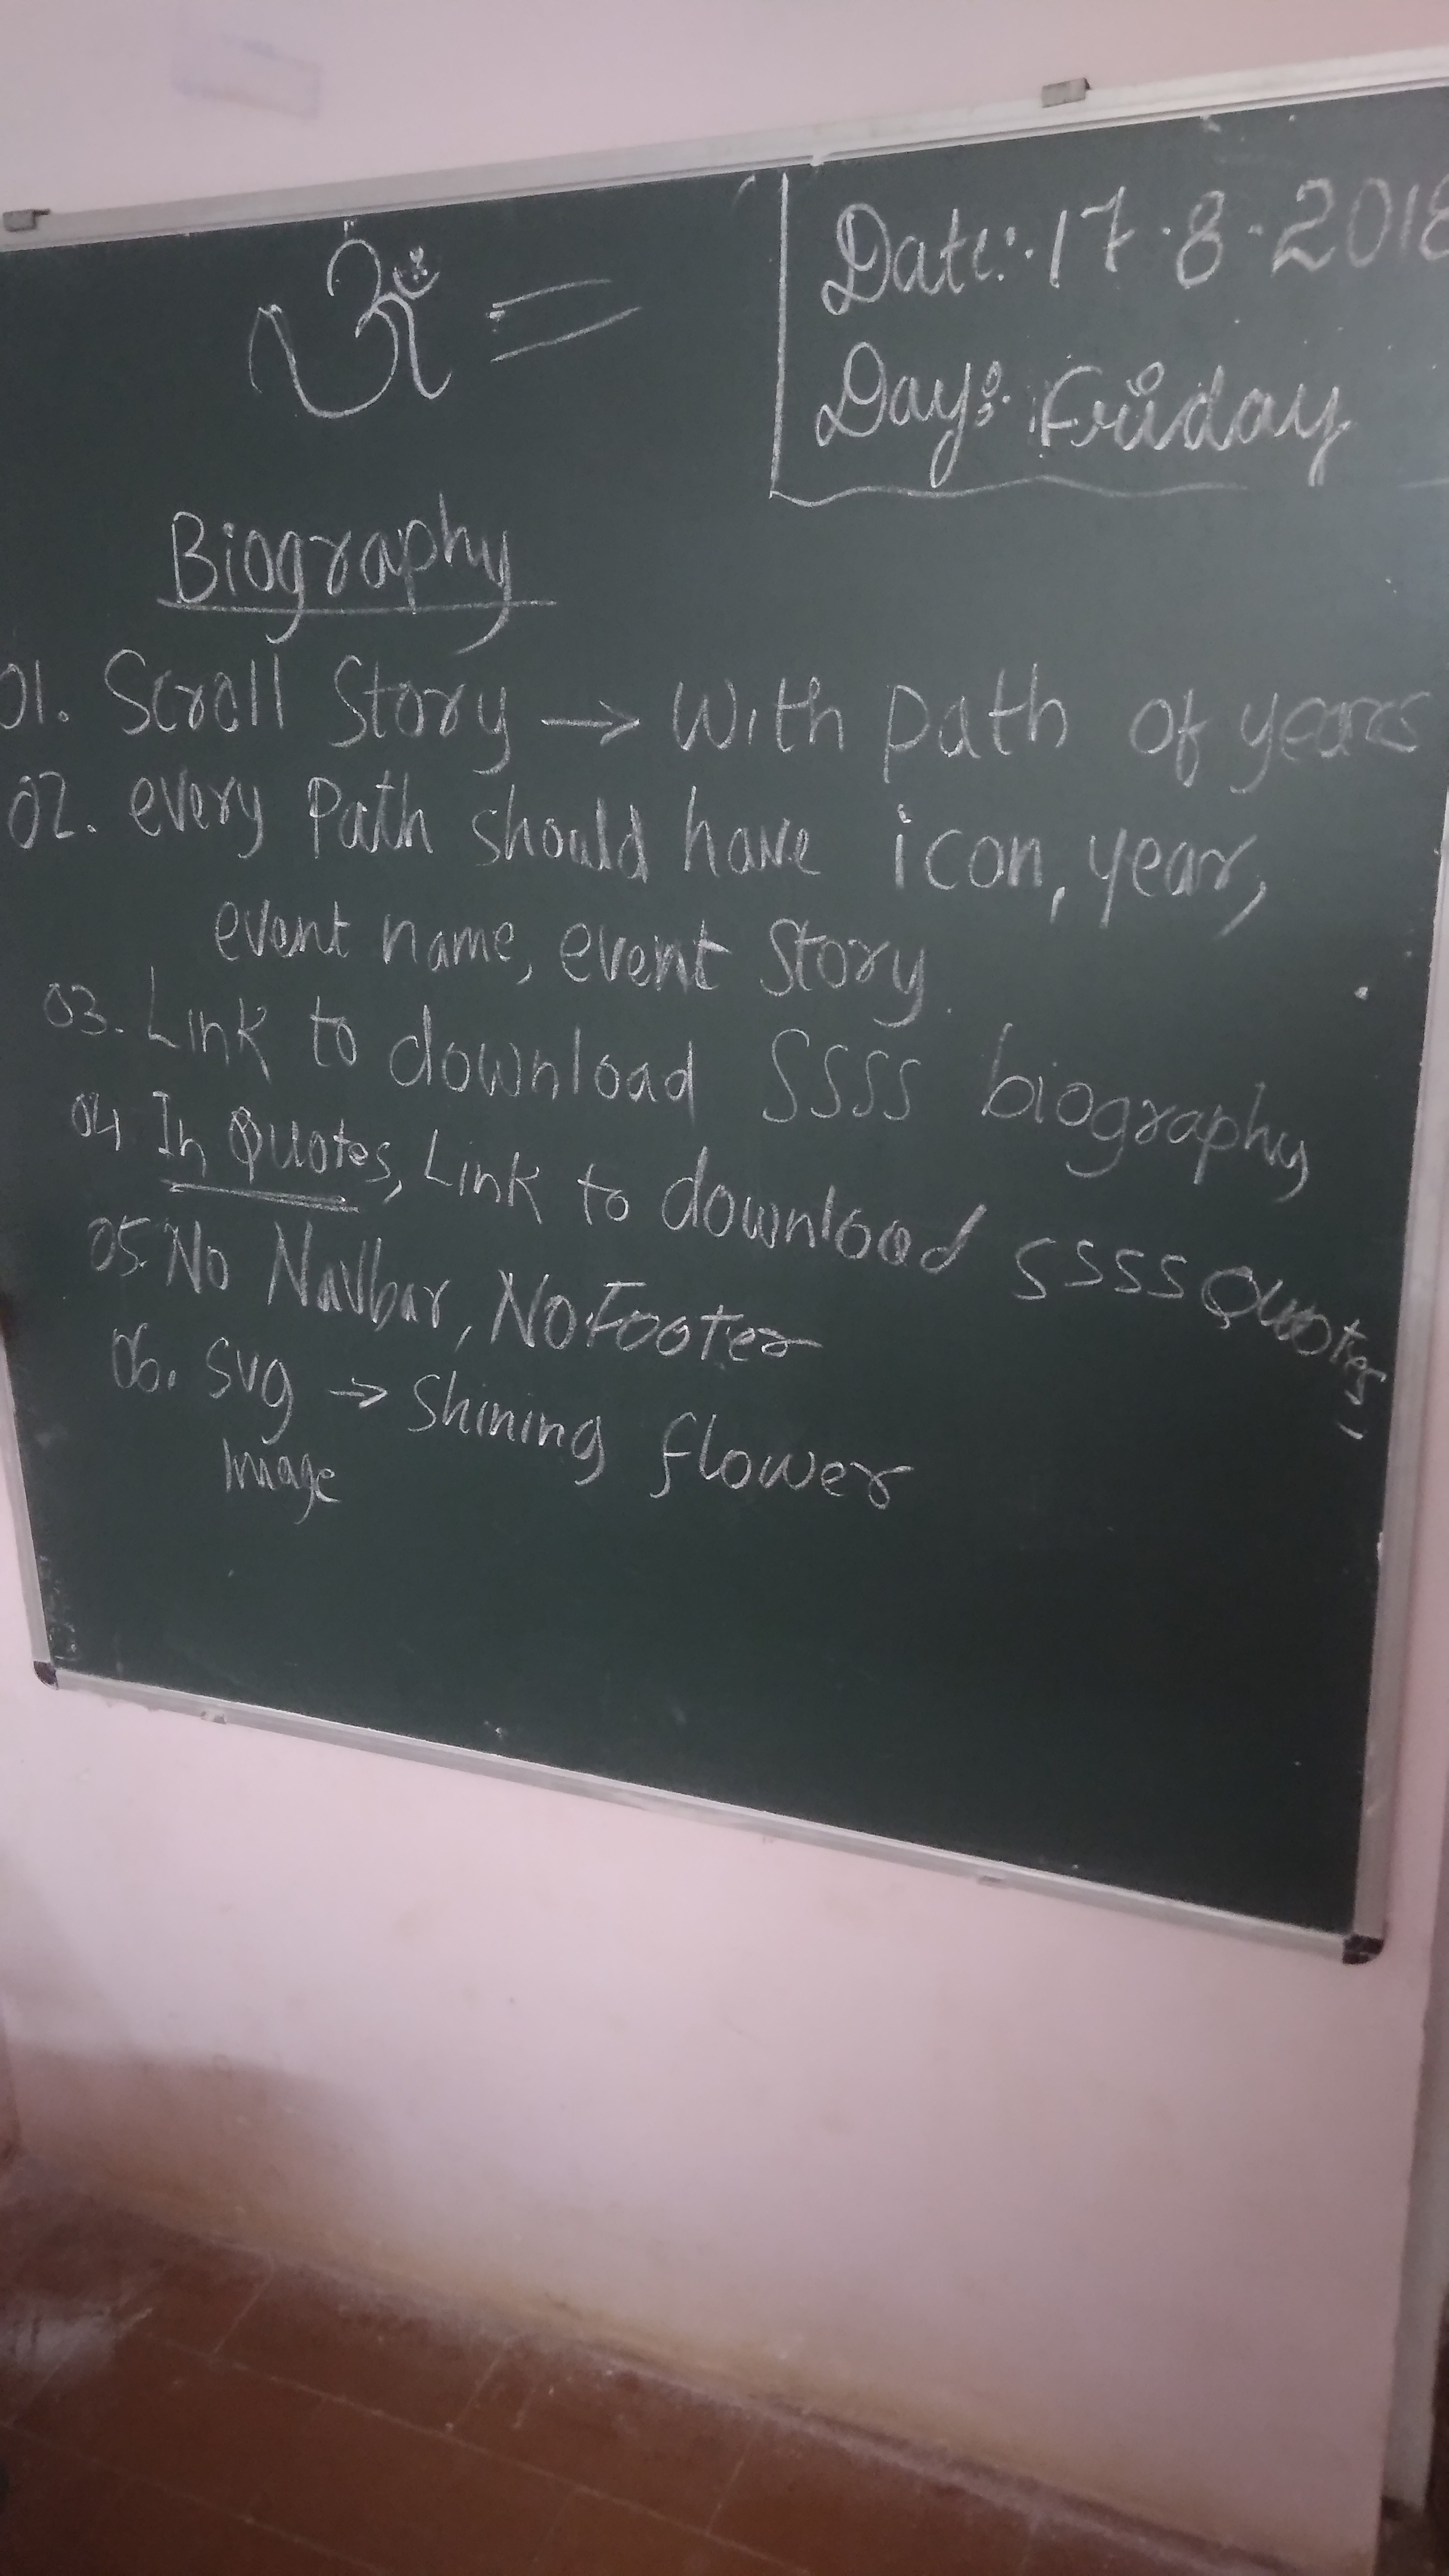 Date:- 17.8.2018
Day:- Friday
Biography
01. Scroll Story → with path of years
02. every Path should have icon, year,
event name, event Story.
03. Link to download SSSS biography
04 In Quotes, Link to download SSSS Quotes
05. No Navbar, No Footer
06. svg → Shining flower
Image